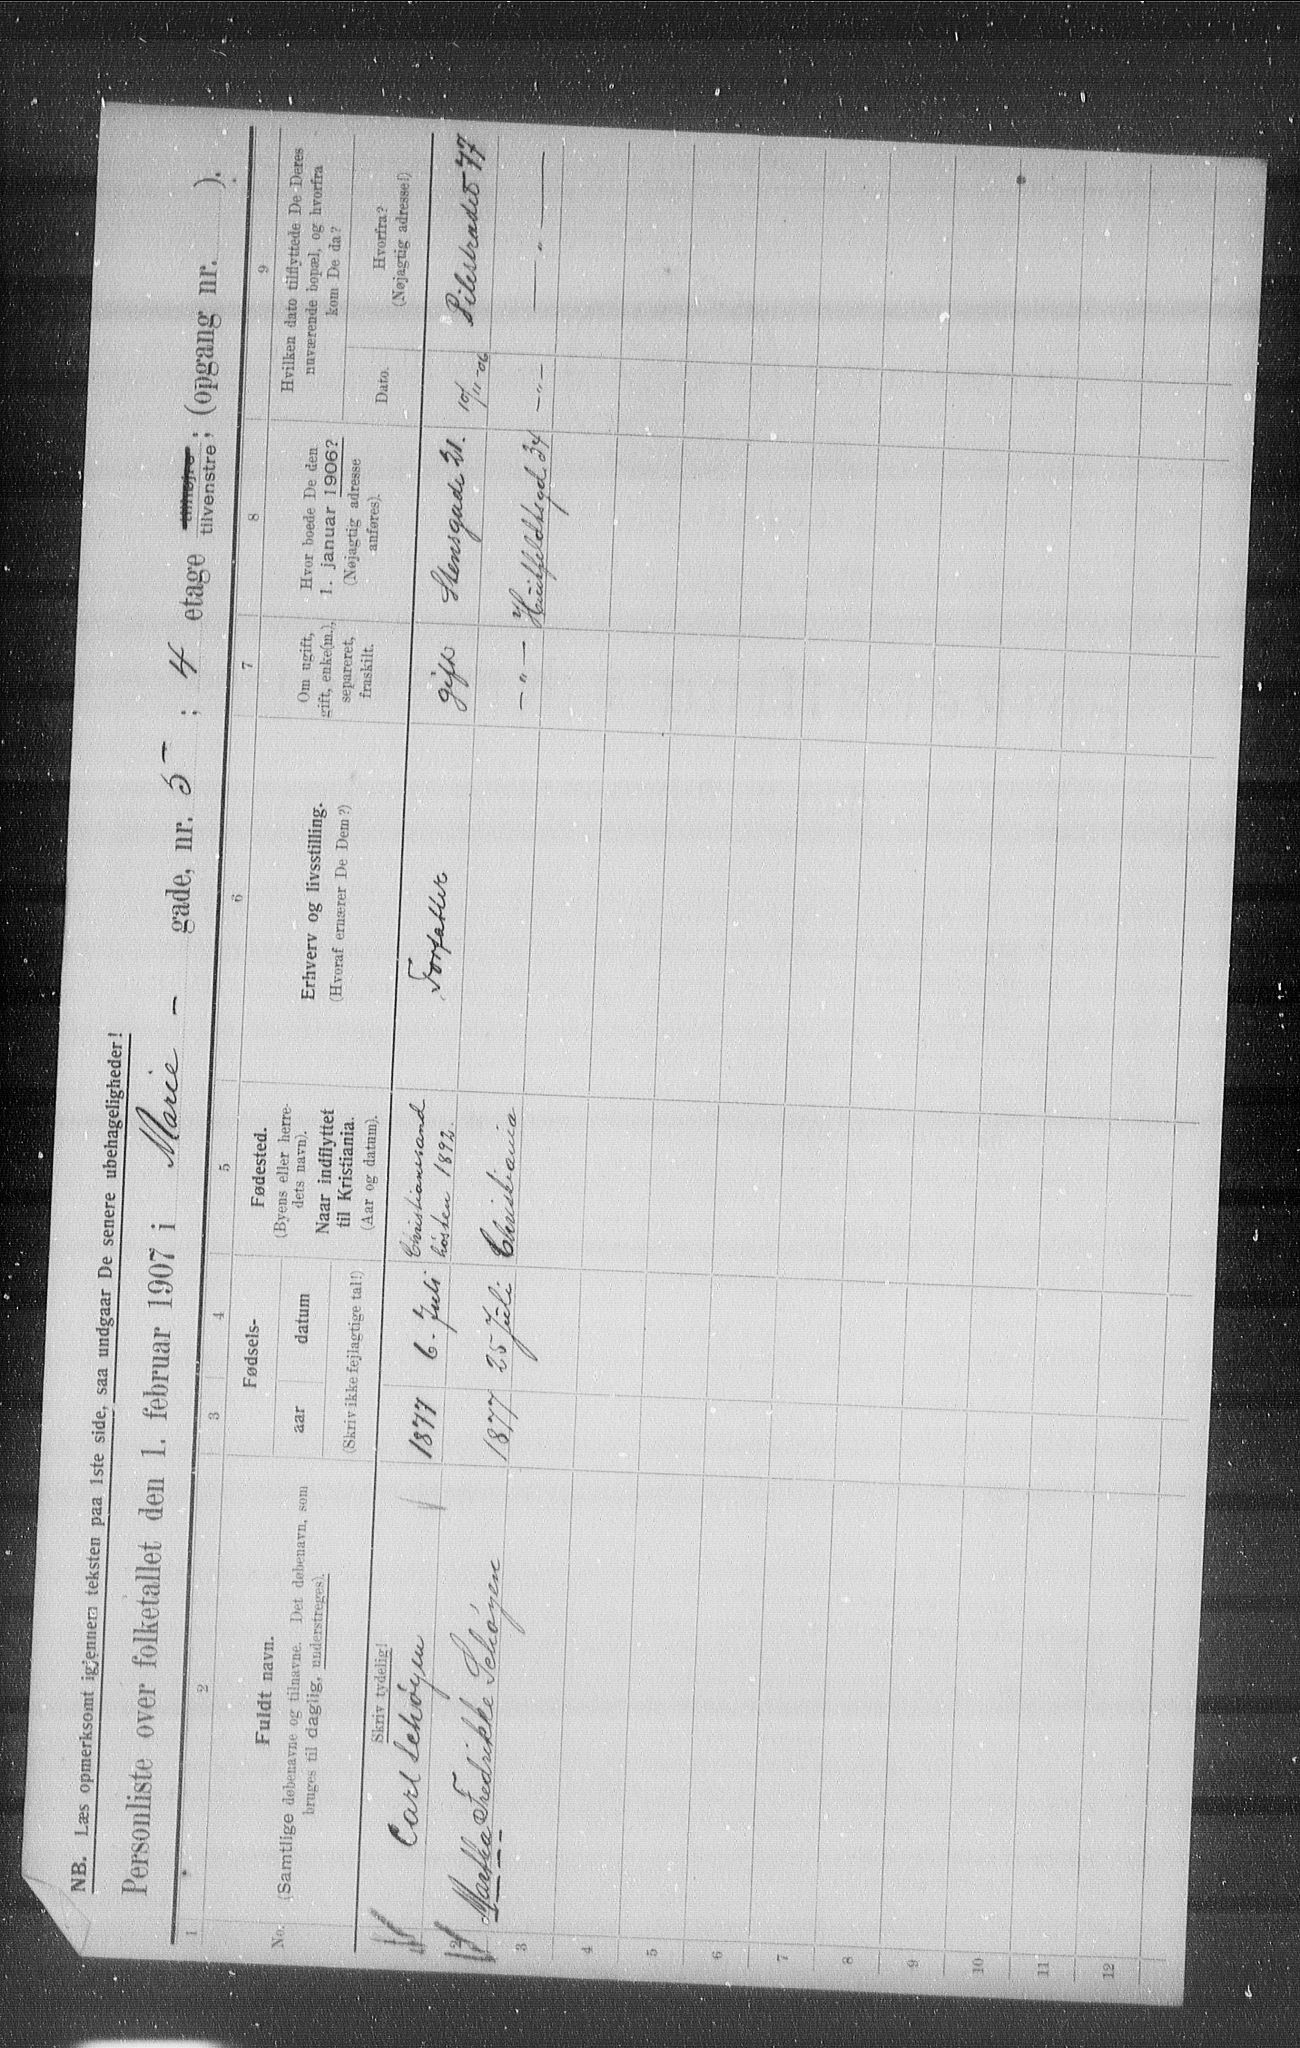 NB. Læs opmerksomt igjennem teksten paa 1ste side, saa undgaar De senere ubehageligheder!
Personliste over folketallet den 1. februar 1907 i Marie - gade, nr. 5 ; 4 etage tilhøjre, tilvenstre, (opgang nr. ).
1 2 3 4 5 6 7 8 9
No.
Fuldt navn.
(Samtlige døbenavne og tilnavne. Det døbenavn, som
bruges til daglig, understreges).
Skriv tydelig!
Fødsels-
aar
datum
(Skriv ikke fejlagtige tal!)
Fødested.
(Byens eller herre-
dets navn).
Naar indflyttet
til Kristiania.
(Aar og datum).
Erhverv og livsstilling.
(Hvoraf ernærer De Dem?)
Om ugift,
gift, enke(m.),
separeret,
fraskilt.
Hvor boede De den
1. januar 1906?
(Nøjagtig adresse
anføres).
Hvilken dato tilflyttede De Deres
nuværende bopæl, og hvorfra
kom De da?
Dato.
Hvorfra?
(Nøjagtig adresse!)
Carl Schöyen 1877 6. Juli Christianssand
hösten 1892. Forfatter gift Stensgade 21. 10/11-06 Pilestrædet 77
2 Martha Fredrikke Schöyen 1877 25 Juli Christiania - " - Huitfeldtsgd. 34 - " - - " -
3
4
5
6
7
8
9
10
11
12